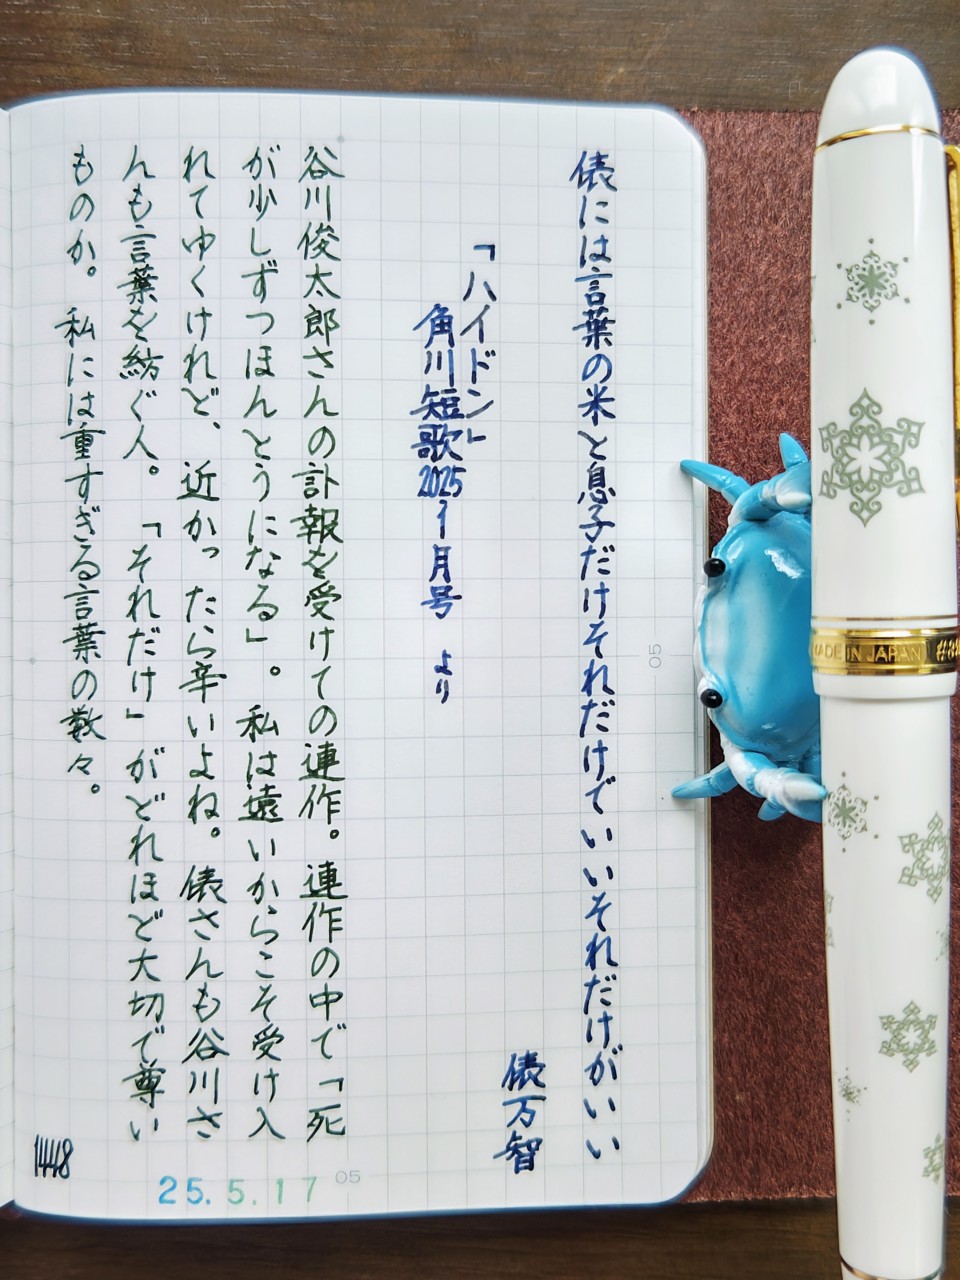 俵には言葉の米と息子だけそれだけでいいそれだけがいい
俵万智
「ハイドン」
角川短歌2025年1月号 より
谷川俊太郎さんの訃報を受けての連作。連作の中で「死
が少しずつほんとうになる」。私は遠いからこそ受け入
れてゆくけれど、近かったら辛いよね。俵さんも谷川さ
んも言葉を紡ぐ人。「それだけ」がどれほど大切で尊い
ものか。私には重すぎる言葉の数々。
25.5.17
05
05
MADE IN JAPAN